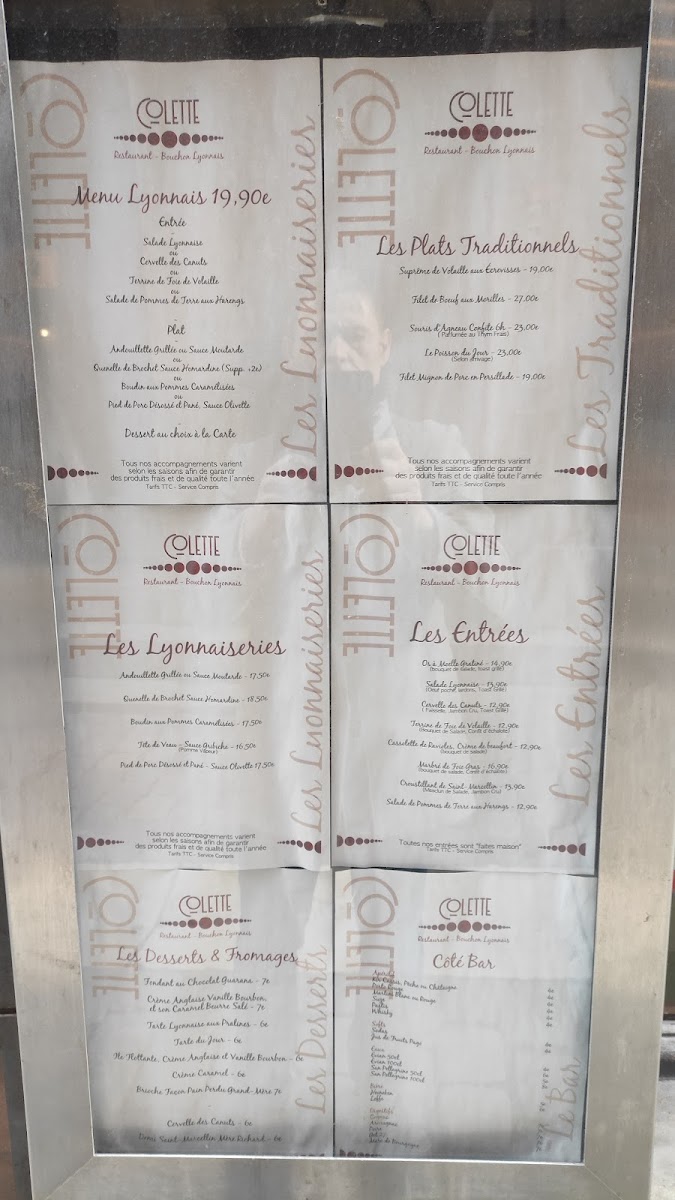 COLETTE
Restaurant - Bouchon Lyonnais
Menu Lyonnais 19,90€
Entrée
-
Salade Lyonnaise
ou
Cervelle des Canuts
ou
Terrine de Foie de Volaille
ou
Salade de Pommes de Terre aux Harengs
-
Plat
-
Andouillette Grillée ou Sauce Moutarde
ou
Quenelle de Brochet Sauce Homardine (Supp. +2€)
ou
Boudin aux Pommes Caramélisées
ou
Pied de Porc Désossé et Pané, Sauce Olivette
-
Dessert au choix à la Carte
Tous nos accompagnements varient
selon les saisons afin de garantir
des produits frais et de qualité toute l'année
Tarifs TTC - Service Compris
COLETTE
Les Lyonnaiseries
COLETTE
Restaurant - Bouchon Lyonnais
Les Plats Traditionnels
Suprême de Volaille aux Ecrevisses - 19,00€
Filet de Boeuf aux Morilles - 27,00€
Souris d'Agneau Confite 6h - 23,00€
(Parfumée au Thym Frais)
Le Poisson du Jour - 23,00€
(Selon arrivage)
Filet Mignon de Porc en Persillade - 19,00€
Tous nos accompagnements varient
selon les saisons afin de garantir
des produits frais et de qualité toute l'année
Tarifs TTC - Service Compris
COLETTE
Les Traditionnels
COLETTE
Restaurant - Bouchon Lyonnais
Les Lyonnaiseries
Andouillette Grillée ou Sauce Moutarde - 17,50€
Quenelle de Brochet Sauce Homardine - 18,50€
Boudin aux Pommes Caramélisées - 17,50€
Tête de Veau - Sauce Gribiche - 16,50€
(Pomme Vapeur)
Pied de Porc Désossé et Pané - Sauce Olivette 17,50€
Tous nos accompagnements varient
selon les saisons afin de garantir
des produits frais et de qualité toute l'année
Tarifs TTC - Service Compris
COLETTE
Les Lyonnaiseries
COLETTE
Restaurant - Bouchon Lyonnais
Les Entrées
Os à Moelle Gratiné - 14,90€
(Bouquet de salade, toast grillé)
Salade Lyonnaise - 13,90€
(Oeuf poché, Jardons, Toast Grillé)
Cervelle des Canuts - 12,90€
(Faisselle, Jambon Cru, Toast Grillé)
Terrine de Foie de Volaille - 12,90€
(Bouquet de Salade, Confit d'échalote)
Cassolette de Ravioles, Crème de beaufort - 12,90€
(Bouquet de salade)
Marbré de Foie Gras - 16,90€
(Bouquet de salade, Confit d'échalote)
Croustillant de Saint-Marcellin - 13,90€
(Mesclun de Salade, Jambon Cru)
Salade de Pommes de Terre aux Harengs - 12,90€
Toutes nos entrées sont "faites maison"
Tarifs TTC - Service Compris
COLETTE
Les Entrées
COLETTE
Restaurant - Bouchon Lyonnais
Les Desserts & Fromages
Fondant au Chocolat Guarana - 7€
Crème Anglaise Vanille Bourbon,
et son Caramel Beurre Salé - 7€
Tarte Lyonnaise aux Pralines - 6€
Tarte du Jour - 6€
Ile Flottante, Crème Anglaise et Vanille Bourbon - 6€
Crème Caramel - 6€
Brioche Façon Pain Perdu Grand-Mère 7€
Cervelle des Canuts - 6€
Demi Saint-Marcellin Mère Richard - 6€
COLETTE
Les Desserts
COLETTE
Restaurant - Bouchon Lyonnais
Côté Bar
Apéritif
Kir Cassis, Pêche ou Châtaigne
Porto Rouge
Martini Blanc ou Rouge
Suze
Pastis
Whisky
Softs
Sodas
Jus de Fruits Pago
Eaux
Evian 50cl
Evian 100cl
San Pellegrino 50cl
San Pellegrino 100cl
Bière
Digestifs
COLETTE
Le Bar